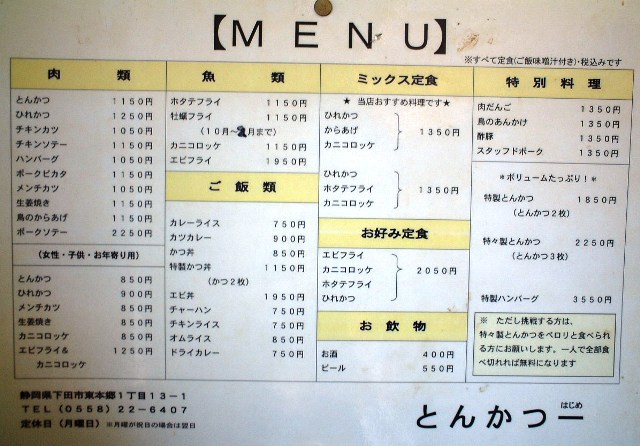 【MENU】
※すべて定食(ご飯味噌汁付き)・税込みです
肉 類
とんかつ 1150円
ひれかつ 1250円
チキンカツ 1050円
チキンソテー 1150円
ハンバーグ 1050円
ポークピカタ 1150円
メンチカツ 1050円
生姜焼き 1150円
鳥のからあげ 1150円
ポークソテー 2250円
(女性・子供・お年寄り用)
とんかつ 850円
ひれかつ 900円
メンチカツ 850円
生姜焼き 850円
カニコロッケ 850円
エビフライ& 1250円
カニコロッケ
魚 類
ホタテフライ 1150円
牡蠣フライ 1150円
(10月~2月まで)
カニコロッケ 1150円
エビフライ 1950円
ご飯類
カレーライス 750円
カツカレー 900円
かつ丼 850円
特製かつ丼 1150円
(かつ2枚)
エビ丼 1950円
チャーハン 750円
チキンライス 750円
オムライス 850円
ドライカレー 750円
ミックス定食
★ 当店おすすめ料理です★
ひれかつ
からあげ 1350円
カニコロッケ
ひれかつ
ホタテフライ 1350円
カニコロッケ
お好み定食
エビフライ
カニコロッケ 2050円
ホタテフライ
ひれかつ
お飲物
お酒 400円
ビール 550円
特別料理
肉だんご 1350円
鳥のあんかけ 1350円
酢豚 1350円
スタッフドポーク 1350円
*ボリュームたっぷり!*
特製とんかつ 1850円
(とんかつ2枚)
特々製とんかつ 2250円
(とんかつ3枚)
特製ハンバーグ 3550円
※ ただし挑戦する方は、
特々製とんかつをペロリと食べられ
る方にお願いします。一人で全部食
べ切れれば無料になります
静岡県下田市東本郷1丁目13-1
TEL(0558)22-6407
定休日(月曜日) ※月曜が祝日の場合は翌日
はじめ
とんかつ一